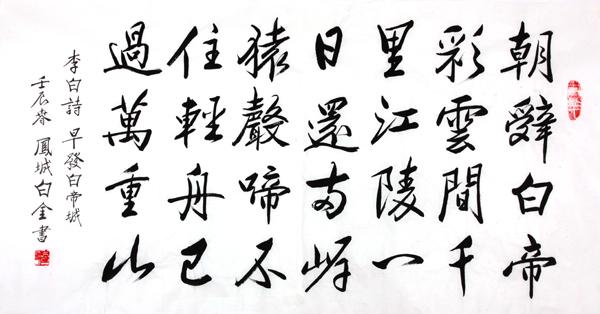 朝辭白帝
彩雲間千
里江陵一
日還兩岸
猿聲啼不
住輕舟已
過萬重山
李白詩 早發白帝城
壬辰春 鳳城白全書